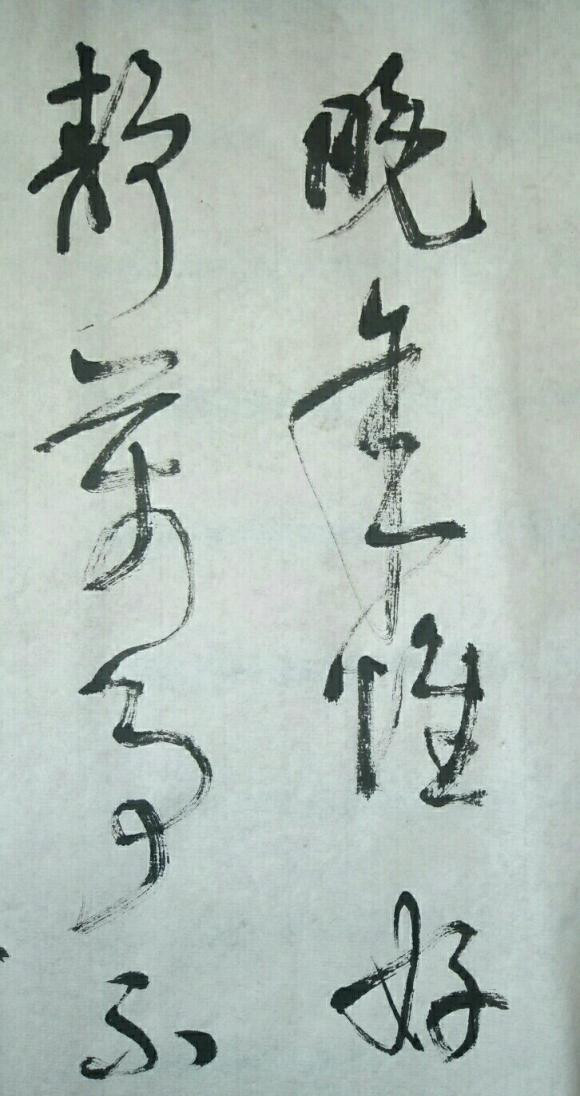 晚年惟好
静万事不